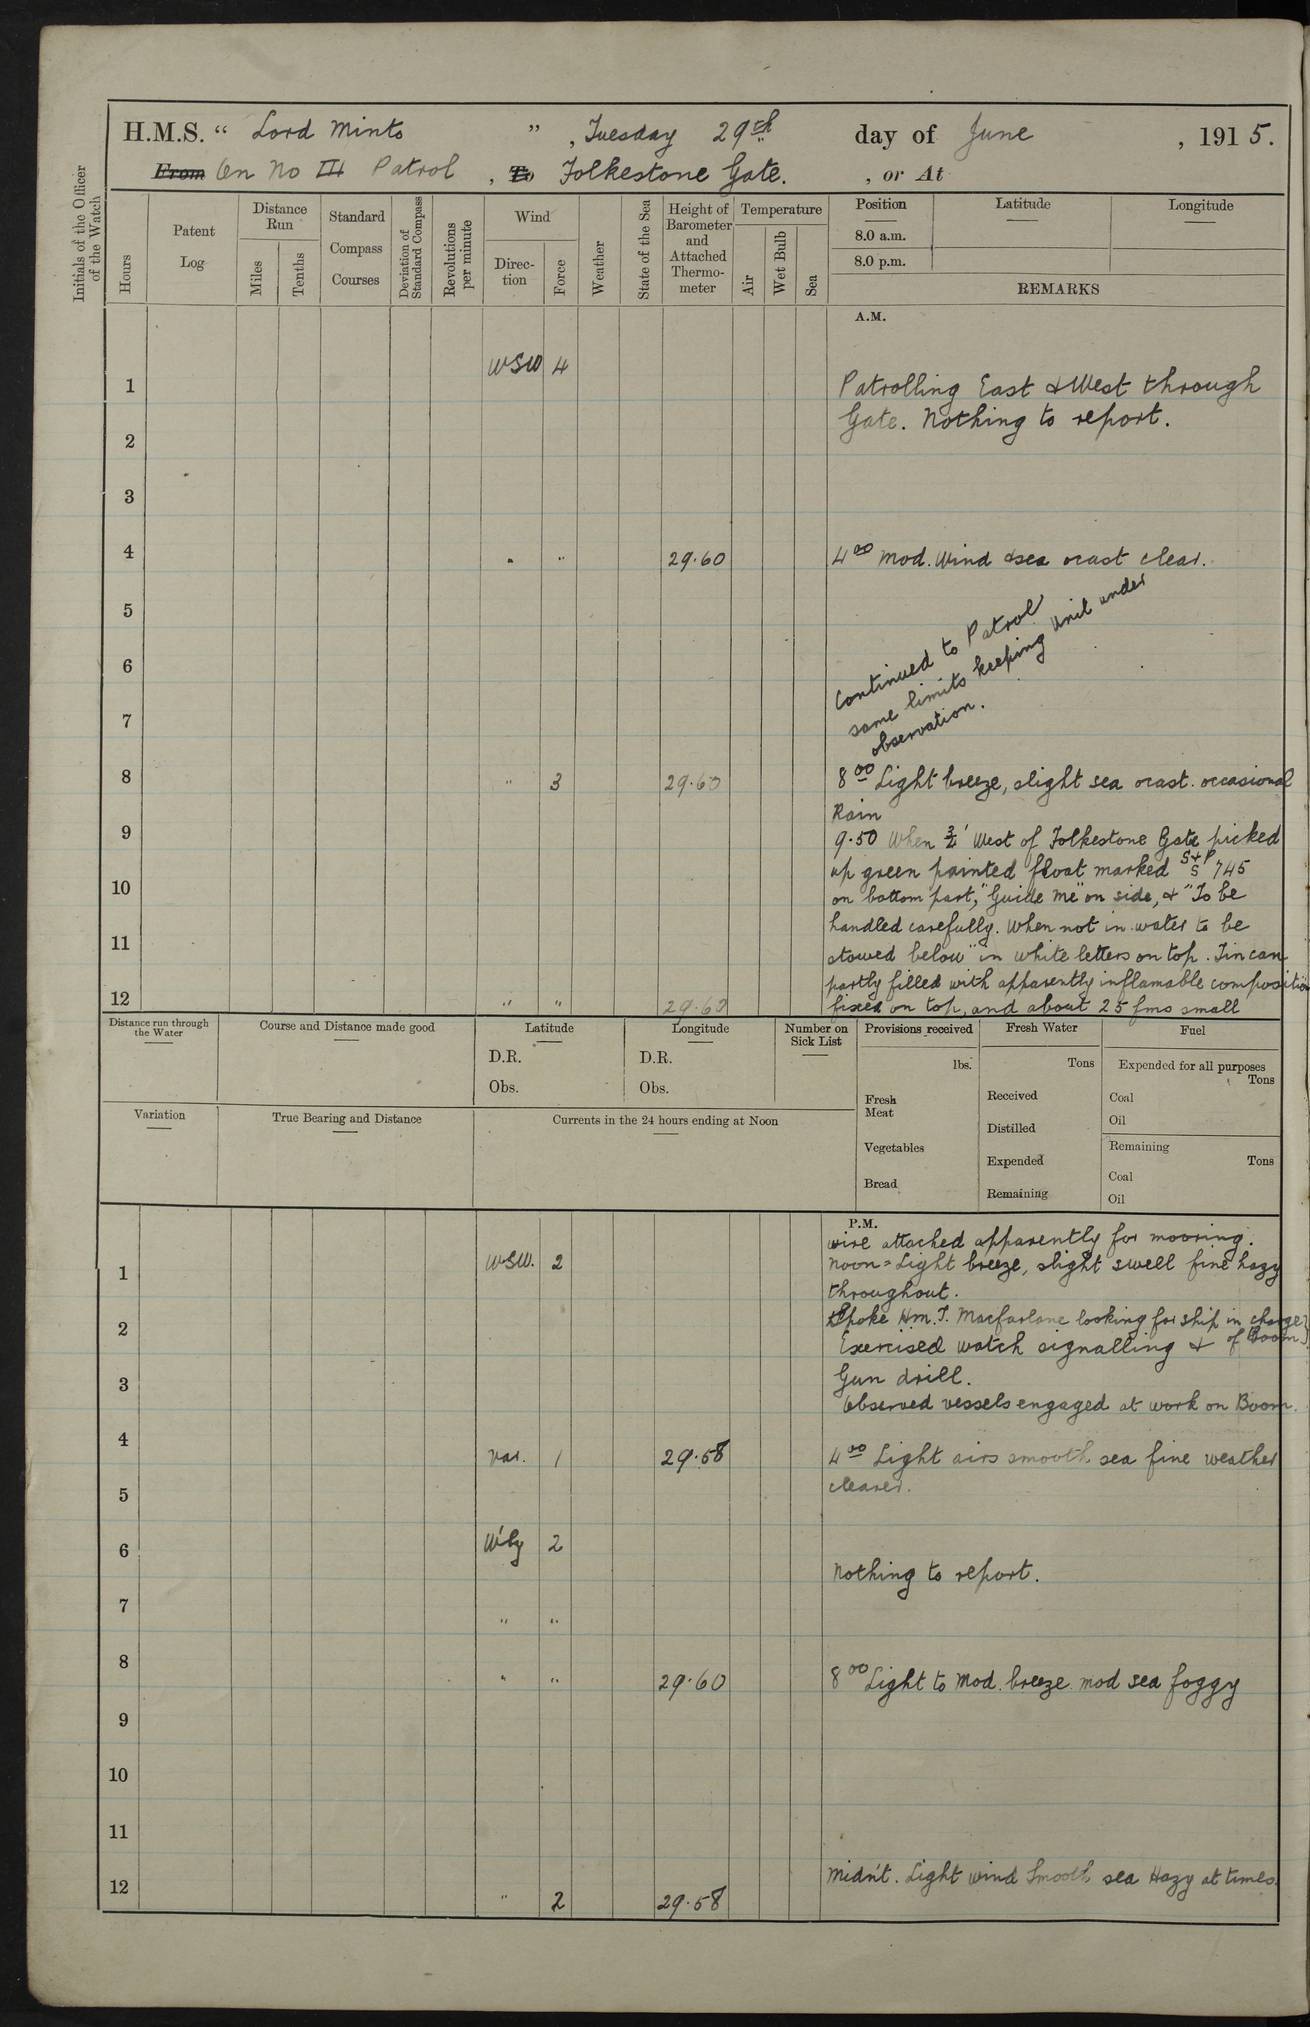 H.M.S. " Lord Minto ", Tuesday 29th day of June, 1915.
From On No III Patrol, To Folkestone Gate. , or At
Initials of the Officer of the Watch
Hours
Patent Log
Distance Run
Miles
Tenths
Standard Compass Courses
Deviation of Standard Compass
Revolutions per minute
Wind
Direction
Force
Weather
State of the Sea
Height of Barometer and Attached Thermometer
Temperature
Air
Wet Bulb
Sea
Position
8.0 a.m.
8.0 p.m.
Latitude
Longitude
REMARKS
A.M.
WSW 4
1 Patrolling East & West through
Gate. Nothing to report.
2
3
4 " " 29.60 4 00 Mod. Wind & sea ocast clear.
5
6
7
Continued to Patrol
same limits keeping Unit under
observation.
8 " 3 29.60 8 00 Light breeze, slight sea ocast. occasional
Rain
9 9.50 When 3/4' West of Folkestone Gate picked
up green painted float marked S+P S 745
10 on bottom part, "Guide Me" on side, & "To be
handled carefully. When not in water to be
11 stowed below" in white letters on top. Tin can
partly filled with apparently inflamable composition
12 " " 29.60 fixed on top, and about 25 fms small
Distance run through the Water
Course and Distance made good
Latitude
D.R.
Obs.
Longitude
D.R.
Obs.
Number on Sick List
Provisions received
lbs.
Fresh Meat
Vegetables
Bread
Fresh Water
Tons
Received
Distilled
Expended
Remaining
Fuel
Expended for all purposes
Tons
Coal
Oil
Remaining
Tons
Coal
Oil
Variation
True Bearing and Distance
Currents in the 24 hours ending at Noon
P.M.
wire attached apparently for mooring.
1 WSW. 2 Noon = Light breeze, slight swell fine hazy
throughout.
2 Spoke Hm. T. Macfarlane looking for ship in charge
of Boom.
Exercised watch signalling &
3 Gun drill.
Observed vessels engaged at work on Boom.
4 Var. 1 29.58 4 00 Light airs smooth sea fine weather
clearer.
5
6 W'ly 2
Nothing to report.
7 " "
8 " " 29.60 8 00 Light to Mod. breeze mod sea foggy
9
10
11
12 " 2 29.58 Midn't. Light wind Smooth sea Hazy at times.